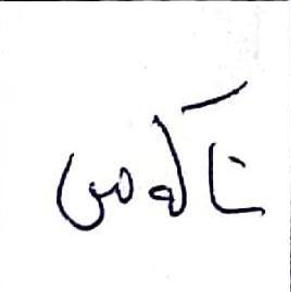 ناکەس